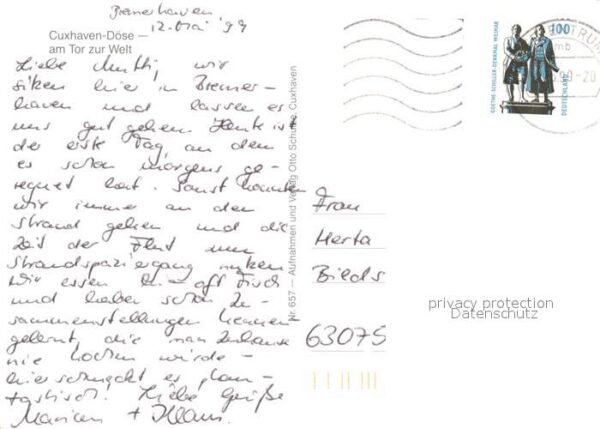 Bremerhaven
12. Mai '99
Cuxhaven-Döse
am Tor zur Welt
Liebe Mutti, wir
sitzen hier in Bremer-
haven und lassen es
uns gut gehen. Heute ist
der erste Tag, an dem
es schon morgens ge-
regnet hat. Sonst konnten
wir immer an den
Strand gehen und die
Zeit der Flut zum
Strandspaziergang nutzen
Wir essen oft Fisch
und haben schon Zu-
sammenstellungen kennen-
gelernt, die man Zuhause
nie kochen würde -
hier schmeckt es phan-
tastisch. Liebe Grüße
Marion + Klaus.
Nr. 657 — Aufnahmen und Verlag Otto Schulze, Cuxhaven
100
GOETHE-SCHILLER-DENKMAL WEIMAR
DEUTSCHLAND
Frau
Herta
63075
privacy protection
Datenschutz